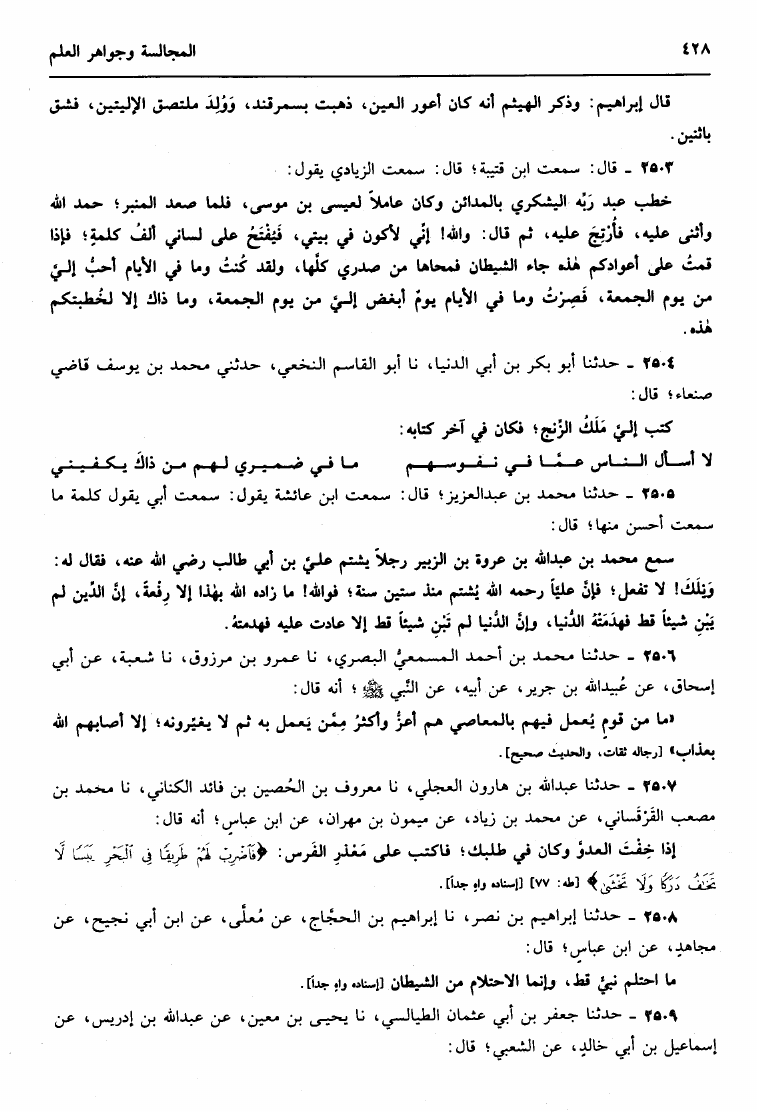 ٤٢٨
المجالسة وجواهر العلم
قال إبراهيم: وذكر الهيثم أنه كان أعور العين، ذهبت بسمرقند، وَوُلِدَ ملتصق الإليتين، فشق
باثنين.
٢٥٠٣ - قال: سمعت ابن قتيبة؛ قال: سمعت الزيادي يقول:
خطب عبد رَبِّه اليشكري بالمدائن وكان عاملاً لعيسى بن موسى، فلما صعد المنبر؛ حمد الله
وأثنى عليه، فأُرْتِجَ عليه، ثم قال: والله! إنِّي لأكون في بيتي، فَيُفْتَحُ على لساني ألفُ كلمةٍ؛ فإذا
قمتُ على أعوادكم هٰذه جاء الشيطان فمحاها من صدري كلَّها، ولقد كُنتُ وما في الأيام أحبُّ إليَّ
من يوم الجمعة، فَصِرْتُ وما في الأيام يومٌ أبغض إليَّ من يوم الجمعة، وما ذاك إلا لخُطبتكم
هٰذه.
٢٥٠٤ - حدثنا أبو بكر بن أبي الدنيا، نا أبو القاسم النخعي، حدثني محمد بن يوسف قاضي
صنعاء؛ قال:
كتب إليَّ مَلَكُ الزَّنج؛ فكان في آخر كتابه:
لا أسأل الناس عمَّا في نفوسهم ما في ضميري لهم من ذاكَ يكفيني
٢٥٠٥ - حدثنا محمد بن عبدالعزيز؛ قال: سمعت ابن عائشة يقول: سمعت أبي يقول كلمة ما
سمعت أحسن منها؛ قال:
سمع محمد بن عبدالله بن عروة بن الزبير رجلاً يشتم عليَّ بن أبي طالب رضي الله عنه، فقال له:
وَيْلَكَ! لا تفعل؛ فإنَّ عليّاً رحمه الله يُشتم منذ ستين سنة؛ فوالله! ما زاده الله بهٰذا إلا رِفْعةً، إنَّ الدِّين لم
يَبْنِ شيئاً قط فهدَمَتْهُ الدُّنيا، وإنَّ الدُّنيا لم تَبْنِ شيئاً قط إلا عادت عليه فهدمتهُ.
٢٥٠٦ - حدثنا محمد بن أحمد المسمعيُّ البصري، نا عمرو بن مرزوق، نا شعبة، عن أبي
إسحاق، عن عُبيدالله بن جرير، عن أبيه، عن النَّبي ﷺ؛ أنه قال:
«ما من قومٍ يُعمل فيهم بالمعاصي هم أعزُّ وأكثرُ مِمَّن يَعمل به ثم لا يغيّرونه؛ إلا أصابهم الله
بعذاب» [رجاله ثقات، والحديث صحيح].
٢٥٠٧ - حدثنا عبدالله بن هارون العجلي، نا معروف بن الحُصين بن فائد الكناني، نا محمد بن
مصعب القَرْقَساني، عن محمد بن زياد، عن ميمون بن مهران، عن ابن عباسٍ؛ أنه قال:
إذا خِفْتَ العدوَّ وكان في طلبك؛ فاكتب على مَعْذرِ الفَرس: ﴿فَاضْرِبْ لَهُمْ طَرِيقًا فِي الْبَحْرِ يَبَسًا لَّا
تَخَٰفُ دَرَكًا وَلَا تَخْشَىٰ﴾ [طه: ٧٧] [إسناده واهٍ جداً].
٢٥٠٨ - حدثنا إبراهيم بن نصر، نا إبراهيم بن الحجَّاج، عن مُعلَّى، عن ابن أبي نجيح، عن
مجاهدٍ، عن ابن عباسٍ؛ قال:
ما احتلم نبيٌّ قط، وإنما الاحتلام من الشيطان [إسناده واهٍ جداً].
٢٥٠٩ - حدثنا جعفر بن أبي عثمان الطيالسي، نا يحيى بن معين، عن عبدالله بن إدريس، عن
إسماعيل بن أبي خالدٍ، عن الشعبي؛ قال: